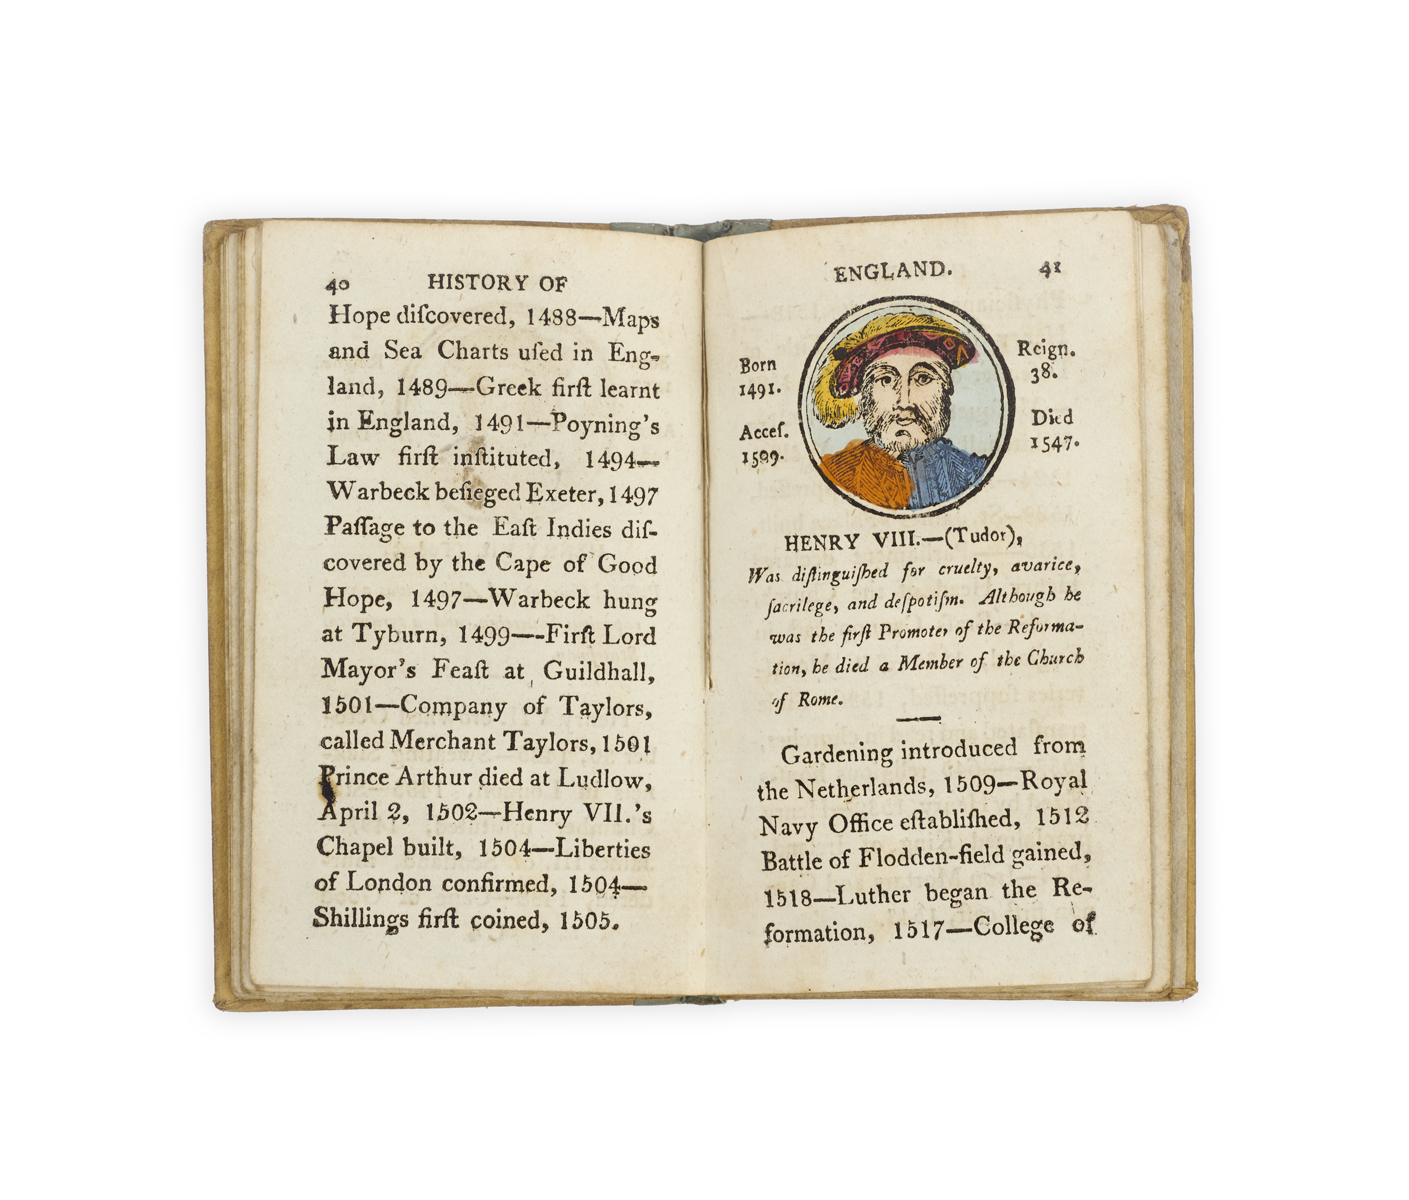 40 HISTORY OF
Hope diſcovered, 1488—Maps
and Sea Charts uſed in Eng-
land, 1489—Greek firſt learnt
in England, 1491—Poyning's
Law firſt inſtituted, 1494—
Warbeck beſieged Exeter, 1497
Paſſage to the Eaſt Indies diſ-
covered by the Cape of Good
Hope, 1497—Warbeck hung
at Tyburn, 1499—-Firſt Lord
Mayor's Feaſt at Guildhall,
1501—Company of Taylors,
called Merchant Taylors, 1501
Prince Arthur died at Ludlow,
April 2, 1502—Henry VII.'s
Chapel built, 1504—Liberties
of London confirmed, 1504—
Shillings firſt coined, 1505.
ENGLAND. 41
Born
1491.
Acceſ.
1509.
Reign.
38.
Died
1547.
HENRY VIII.—(Tudor),
Was diſtinguiſhed for cruelty, avarice,
ſacrilege, and deſpotiſm. Although he
was the firſt Promoter of the Reforma-
tion, he died a Member of the Church
of Rome.
Gardening introduced from
the Netherlands, 1509—Royal
Navy Office eſtabliſhed, 1512
Battle of Flodden-field gained,
1518—Luther began the Re-
formation, 1517—College of